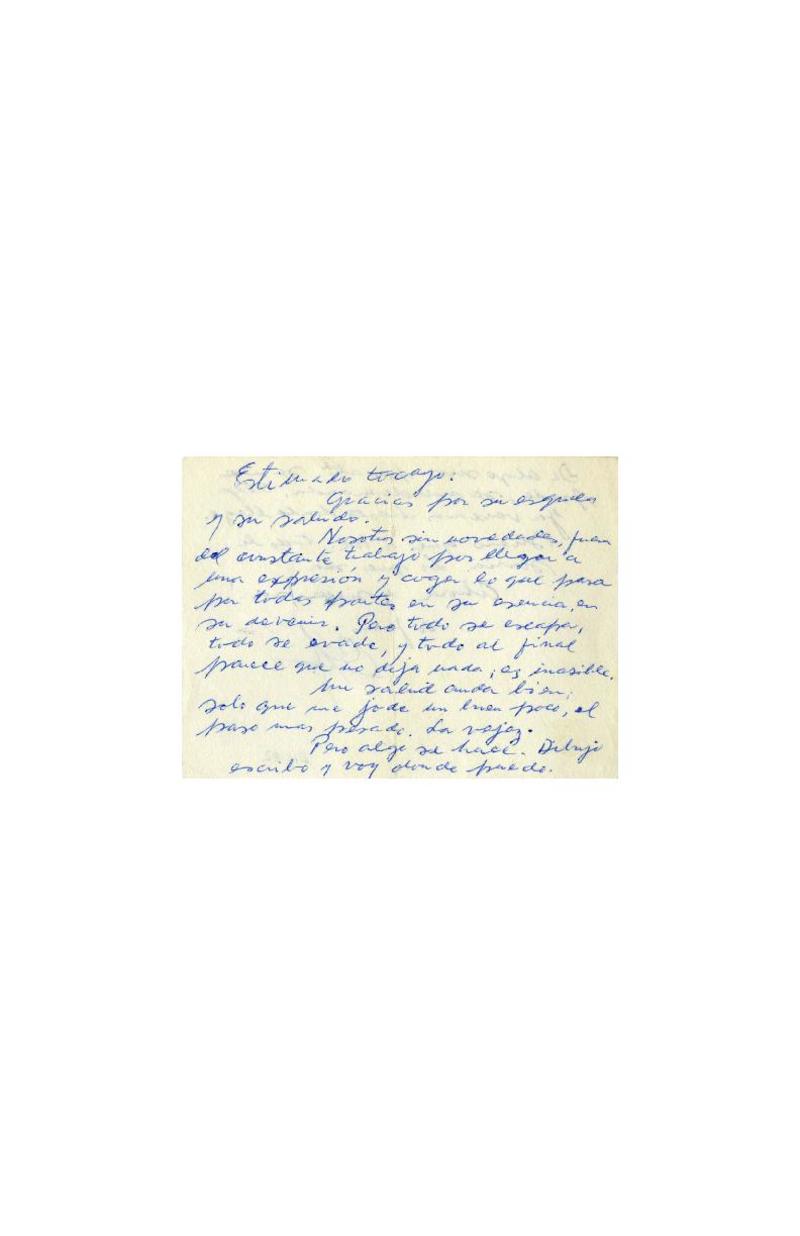 Estimado tocayo:
Gracias por su esquela
y su saludo.
Nosotros sin novedades, fuera
del constante trabajo por llegar a
una expresión y coger lo que pasa
por todas partes en su esencia, en
su devenir. Pero todo se escapa,
todo se evade, y todo al final
parece que no deja nada; es inasible.
Mi salud anda bien;
solo que me jode un buen poco, el
paso mas pesado. La vejez.
Pero algo se hace. Dibujo
escribo y voy donde puedo.